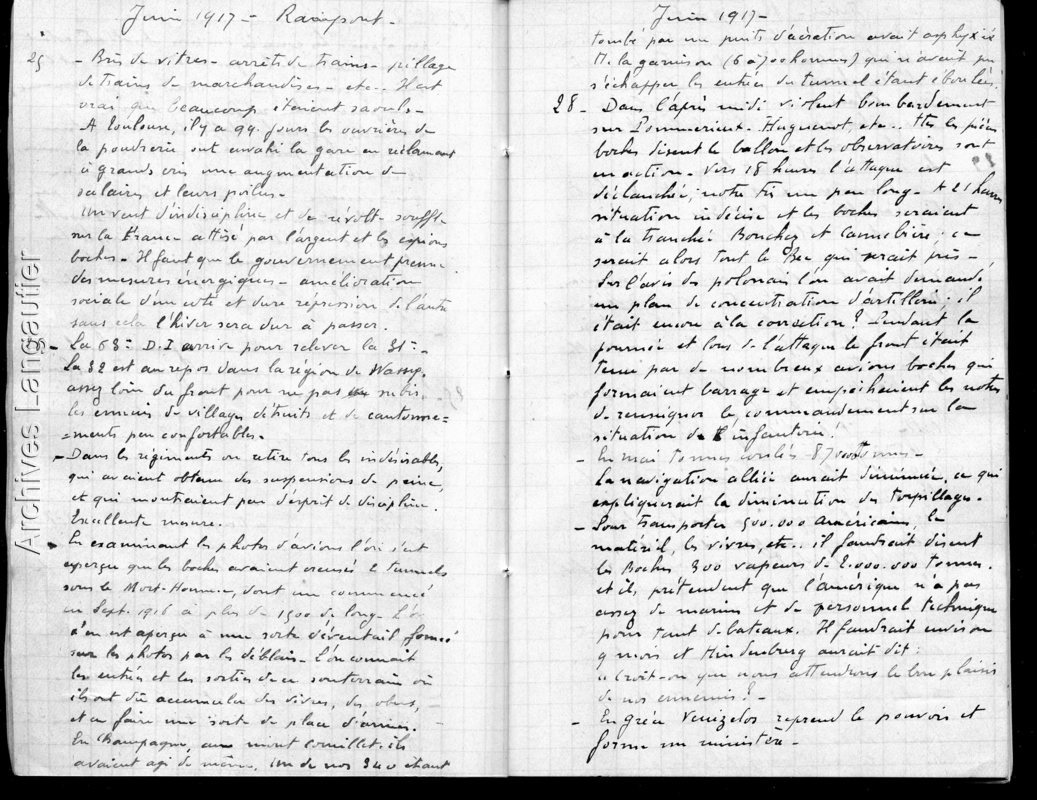 Juin 1917 - Rampont -
25 - Bris de vitres - arrêts de trains - pillage
de trains de marchandises - etc.. Il est
vrai que beaucoup étaient saouls -
A Toulouse, il y a qq. jours les ouvrières de
la poudrerie ont envahi la gare en réclamant
à grands cris une augmentation de
salaires et leurs poilus -
Un vent d'indiscipline et de révolte souffle
sur la France attisé par l'argent et les espions
boches - Il faut que le gouvernement prenne
des mesures énergiques - amélioration
sociale d'un coté et dure répression de l'autre
sans cela l'hiver sera dur à passer.
- La 63e D.I arrive pour relever la 31e -
La 32 est au repos dans la région de Wassy,
assez loin du front pour ne pas subir
les ennuis de villages détruits et de cantonne=
=ments peu confortables -
- Dans les régiments on retire tous les indésirables,
qui avaient obtenu des suspensions de peine,
et qui montraient peu d'esprit de discipline.
Excellente mesure.
- En examinant les photos d'avions l'on s'est
aperçu que les boches avaient creusé 2 tunnels
sous le Mort-Homme, dont un commencé
en Sept. 1916 a plus de 1500 de long - L'on
s'en est aperçu à une sorte d'éventail formé
sur les photos par les déblais - L'on connait
les entrées et les sorties de ce souterrain où
ils ont dû accumuler des vivres, des obus,
et en faire une sorte de place d'armes.
En Champagne, au mont Cornillet, ils
avaient agi de même. Un de nos 340 étant
Juin 1917 -
tombé par un puits d'aération avait asphyxié
tt. la garnison (6 à 700 hommes) qui n'avait pu
s'échapper les entrées du tunnel étant éboulées.
28 - Dans l'après midi violent bombardement
sur Pommerieux - Huguenot, etc.. Ttes les pièces
boches disent le ballon et les observatoires sont
en action - Vers 18 heures l'attaque est
déclanchée; notre tir un peu long - A 21 heures
situation indécise et les boches seraient
à la tranchée Bouchez et Cannebière; ce
serait alors tout le Bec qui serait pris -
Sur l'avis des polonais l'on avait demandé
un plan de concentration d'artillerie; il
était encore à la correction? Pendant la
journée et lors de l'attaque le front était
tenu par de nombreux avions boches qui
formaient barrage et empêchaient les notres
de renseigner le commandement sur la
situation de l'infanterie!
- En mai tonnes coulés 870000 tonnes -
La navigation alliée aurait diminuée, ce qui
expliquerait la diminution des torpillages.
- Pour transporter 500.000 américains, le
matériel, les vivres, etc.. il faudrait disent
les Boches 300 vapeurs de 2.000.000 tonnes.
et ils prétendent que l'amérique n'a pas
assez de marins et de personnel technique
pour tant de bateaux. Il faudrait environ
9 mois et Hindenburg aurait dit:
"Croit-on que nous attendrons le bon plaisir
de nos ennemis? -
- En grèce Venizelos reprend le pouvoir et
forme un ministère -
Archives Langautier